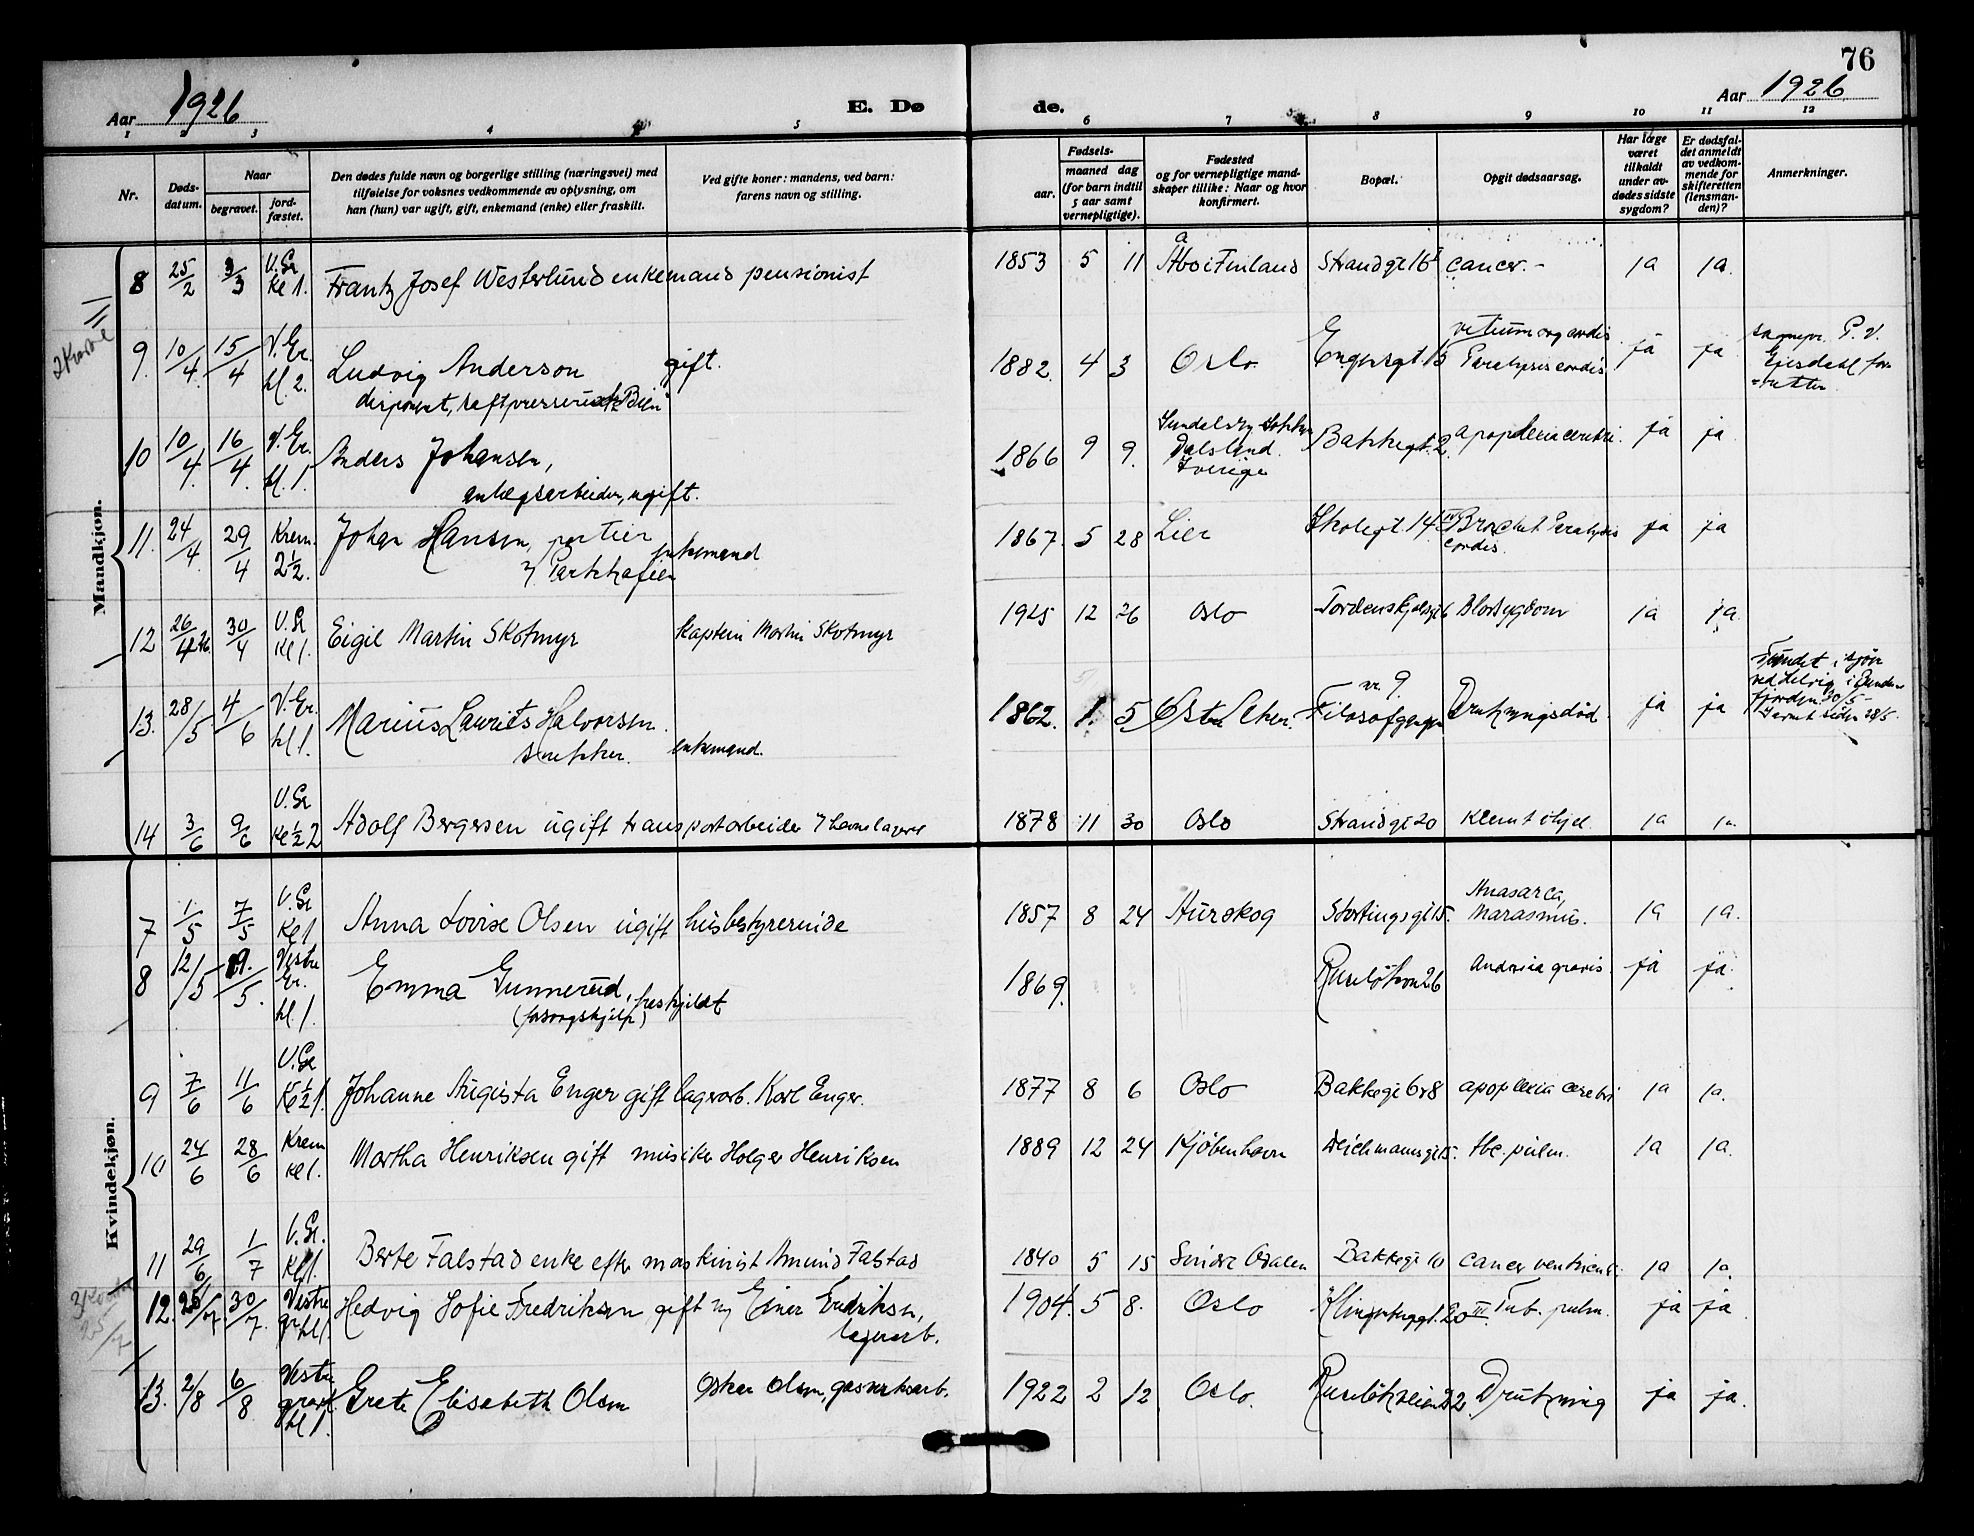 76
Aar 1926
E. Døde.
Aar 1926
1 2 3 4 5 6 7 8 9 10 11 12
Nr.
Dødsdatum.
Naar
begravet.
jordfæstet.
Den dødes fulde navn og borgerlige stilling (næringsvei) med
tilføielse for voksnes vedkommende av oplysning, om
han (hun) var ugift, gift, enkemand (enke) eller fraskilt.
Ved gifte koner: mandens, ved barn:
farens navn og stilling.
Fødsels-
aar.
maaned dag
(for barn indtil
5 aar samt
vernepligtige).
Fødested
og for vernepligtige mandskaper
tillike: Naar og hvor
konfirmert.
Bopæl.
Opgit dødsaarsag.
Har læge
været
tilkaldt
under avdødes
sidste
sygdom?
Er dødsfaldet
anmeldt
av vedkommende
for
skifteretten
(lensmanden)?
Anmerkninger.
Mandkjøn.
8 25/2 3/3 V. Gr Kl 1. Frantz Josef Westerlund enkemand pensionist 1853 5 11 Åbo i Finland Strandgt 16 cancer.- ja ja.
9. 10/4. 15/4 V. Gr. kl. 2. Ludvig Anderson gift. 1882. 4 3 Oslo. Engersgt. 15 vitium org cordis ja ja
disponent, saftpresseriet Paralysis cordis
10 10/4. 16/4. V. Gr. kl. 1. Anders Johansen, 1866 9 9. Dalsland. Sverige Bakkegt. 2. apoplexia cerebri. ja ja
anlegsarbeider, ugift.
11. 24/4. 29/4 Krem. 2½. Johan Hansen, portier enkemand 1867. 5 28 Lier Skolegt. 14 IV Paralysis cordis. ja ja
v/ Parkkafeen
12 26/4 26. 30/4 V. Gr Kl 1. Eigil Martin Skotmyr kaptein Martin Skotmyr 1925 12 26 Oslo Tordenskjoldsgt 6 Blodsygdom ja ja.
13. 28/5 4/6 V. Gr. kl 1. Marius Laurits Halvorsen. 1862. 1. 5 Østre Aker. Filosofgangen nr. 9. Drukningsdød. ja ja Fundet i sjøen
snekker. enkemand.
14 3/6 9/6 V. Gr Kl ½ 2 Adolf Bergersen ugift transportarbeider v/ havnelageret 1878 11 30 Oslo Strandgt 20 Klemt ihjel. ja ja.
Kvindekjøn.
7 1/5 7/5 V. Gr Kl 1 Anna Lovise Olsen ugift husbestyrerinde 1857 8 24 Aurskog Stortingsgt 15. Anasarca, Marasmus. ja ja.
8 12/5 19./5. Vestre Gr. kl. 1. Emma Gunnerud, fraskjildt 1869. Ruseløkvn 26 gravis. ja ja.
(forsorgshjelp)
9 7/6 11/6 V. Gr Kl ½ 1. Johanne Augusta Enger gift lagerarb. Karl Enger. 1877 8 6 Oslo Bakkegt 6 & 8 apoplexia cerebri ja ja.
10 24/6 28/6 Krem kl 1. Martha Henriksen gift musiker Holger Henriksen 1889 12 24 Kjøbenhavn Deichmansgt 15. tbc. pulm. ja ja.
11 29/6 1/7 V. Gr. Kl 1. Berte Falstad enke efter maskinist Amund Falstad 1840 5 15 Søndre Odalen Bakkegt 10 cancer ventriculi ja ja.
12. 25/7 30/7. Vestre gr. kl 1. Hedvig Sofie Fredriksen gift m/ Einar Fredriksen, 1904. 5 8. Oslo 20 III. Tub. pulm. ja ja
lagerarb.
13. 2/8 6/8 Vestre gravl. kl 1. Grete Elisabeth Olsen Oskar Olsen, gasverksarb. 1922 2 12 Oslo. Ruseløkveien 22. Drukning ja ja.